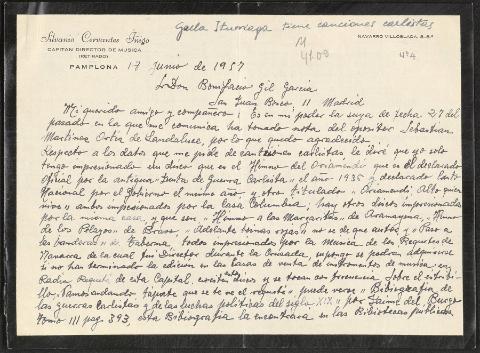 Gaela Iturriaga tiene canciones carlistas
Silvanio Cervantes Iñigo
CAPITAN DIRECTOR DE MUSICA
(RETIRADO)
PAMPLONA 17 junio de 1957
M
4108
NAVARRO VILLOSLADA, 5.2º
nº 4
Sr Don Bonifacio Gil Garcia
San Juan Bosco, 11 Madrid
Mi querido amigo y compañero: Es en mi poder la suya de fecha 27 del
pasado en la que me comunica ha tomado nota del opositor Sebastian
Martinez Ortiz de Landaluce, por lo que quedo agradecido.
Respecto a los datos que me pide de canciones carlistas le diré que yo solo
tengo impresionado un disco que es el Himno del Oriamendi que es el declarado
oficial por la antigua "Junta de guerra Carlista" el año 1935 y declarado Canto
Nacional por el Gobierno el mismo año y otro titulado "Oriamendi" Alto quien
vive" ambos impresionados por la casa Columbia; hay otros discos impresionados
por la misma casa, y que son "Himno a las Margaritas" de Aramayona, "Himno
de los Pelayos" de Bravo, "Adelante boinas rojas" no se de que autor y "Paso a
las banderas" de Taberna, todos impresionados por la Musica de los Requetés de
Navarra de la cual fui Director durante la Cruzada, supongo se podran adquirir
si no han terminado la edicion en las casas de venta de instrumentos de musica, en
Radio Requeté de esta Capital, existen estos discos y se tocan con frecuencia. Sobre el estribi-
llo, "Vamos andando tapate que se te ve el requeté" puede verse "Bibiografia de
las guerras Carlistas y de las luchas politicas del siglo XIX" por Jaime del Burgo
Tomo III pag. 393 esta Bibiografia la encontrara en las Bibliotecas publicas